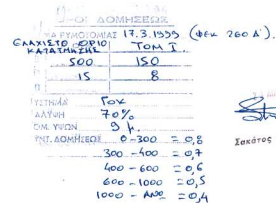 ΟΡΟΙ ΔΟΜΗΣΕΩΣ
ΡΥΜΟΤΟΜΙΑΣ 17.3.1999 (ΦΕΚ 260 Δ').
ΕΛΑΧΙΣΤΟ ΟΡΙΟ ΤΟΜ Ι.
ΚΑΤΑΤΜΗΣΗΣ
500 150
15 8
ΣΥΣΤΗΜΑ Γοκ
ΚΑΛΥΨΗ 70%
ΥΨΩΝ 9 μ.
ΣΥΝΤ. ΔΟΜΗΣΕΩΣ 0-300 = 0,8
300-400 = 0,7
400-600 = 0,6
600-1000 = 0,5
1000 - ΑΝΩ = 0,4
Σακάτος